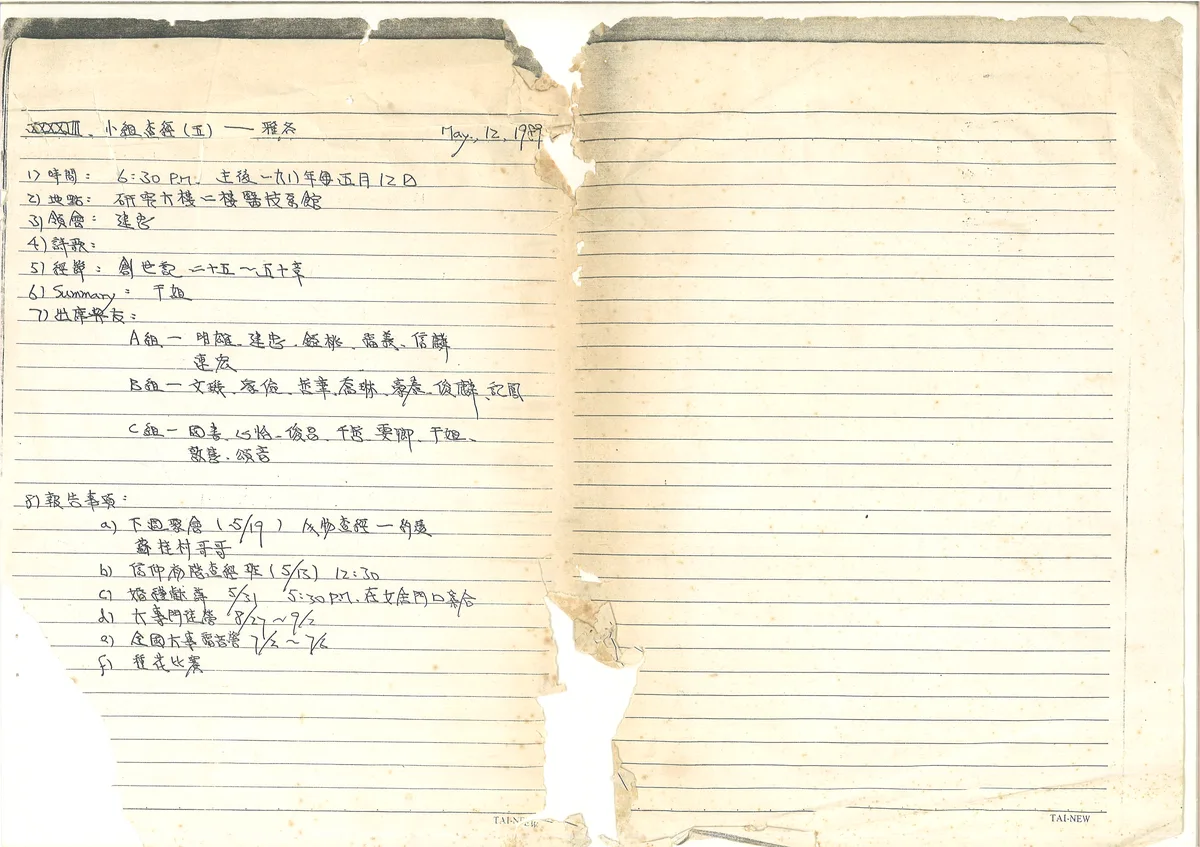 XXXXIII、小組查經(五) — 雅各 May., 12, 1989
1) 時間: 6:30 P.M. 主後一九八年 五月12日
2) 地點: 研究大樓二樓醫技系館
3) 領會: 建忠
4) 詩歌:
5) 經節: 創世記 二十五~五十章
6) Summary: 于姐
7) 出席 友:
A組 — 明雄、建忠、 桃、 義、信麟
連宏
B組 — 文 、家俊、哲事、喬琳、 、俊麟、記圓
C組 — 國書、心怡、俊呂、千哲、 卿、于姐、
敦 、頌音
8) 報告事項:
a) 下週聚會 (5/19) 人物查經 —
蘇桂村哥哥
b) 信仰 階查經班 (5/13) 12:30
c) 獻 5/31 5:30 P.M. 在 門口集合
d) 大專門徒營 8/27~9/2
e) 全國大專 音營 7/2~7/6
f) 比賽
TAI-NEW
TAI-NEW